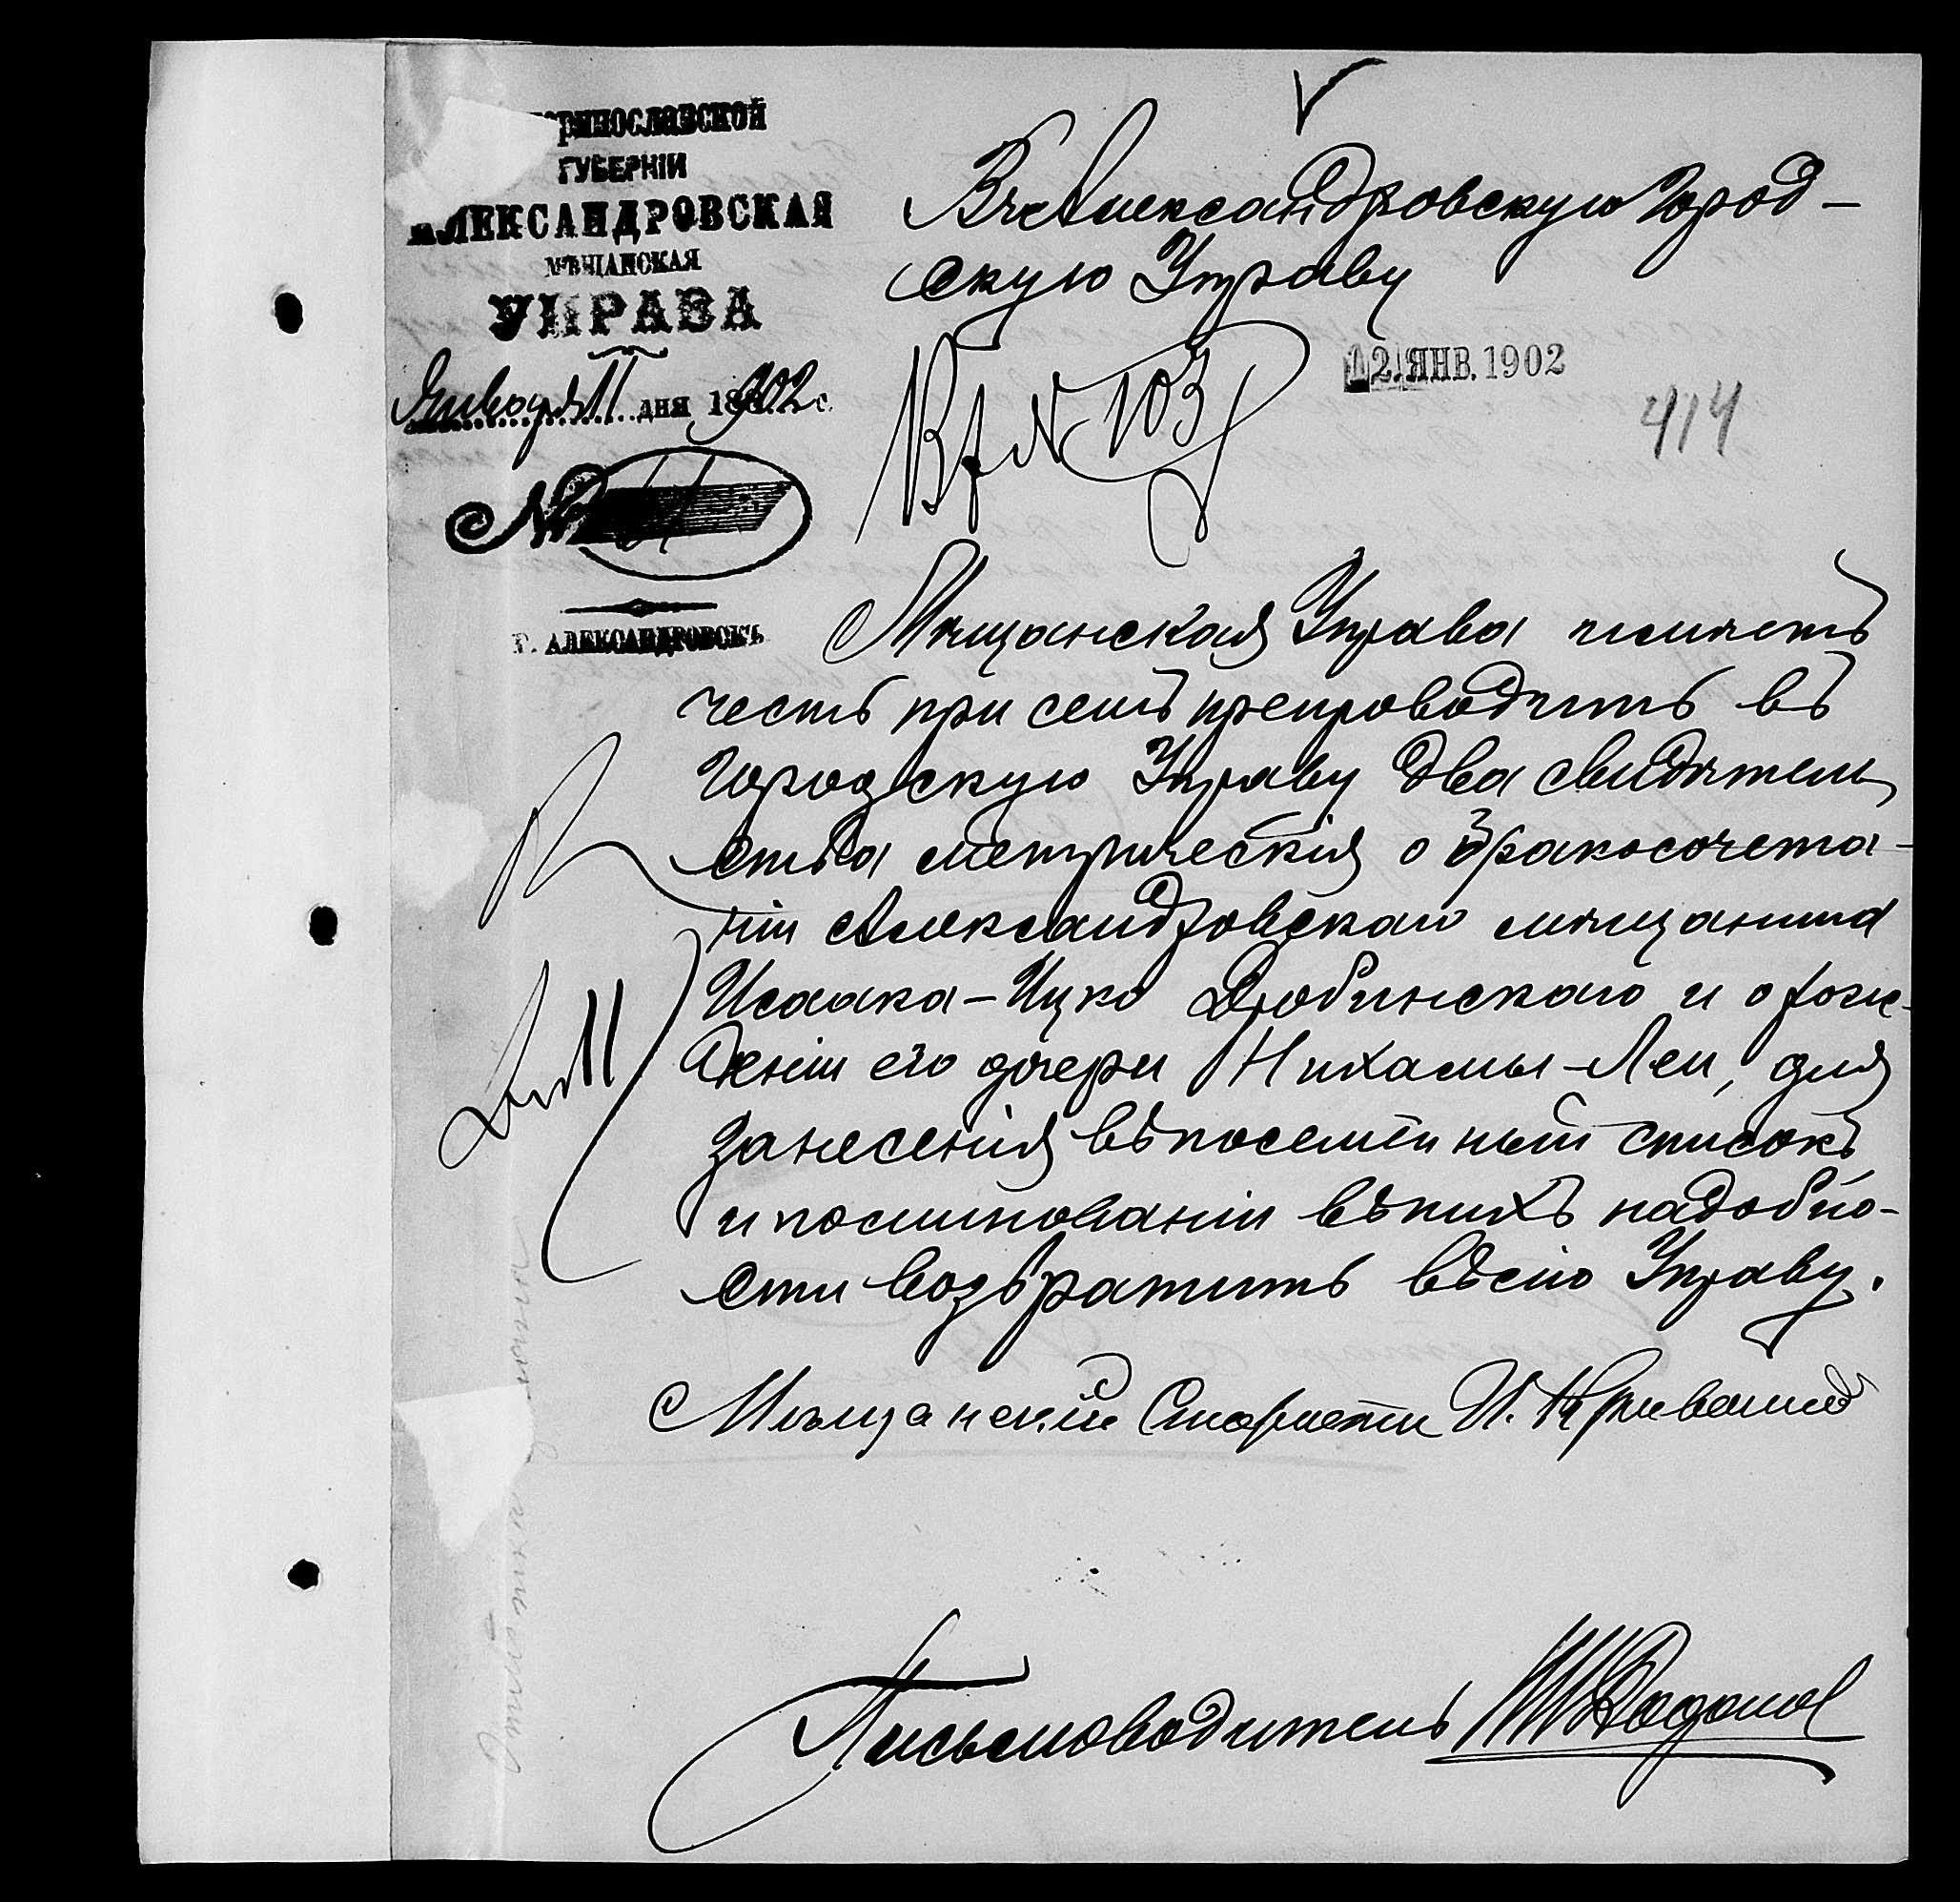 ЕКАТЕРИНОСЛАВСКОЙ
ГУБЕРНІИ
АЛЕКСАНДРОВСКАЯ
МѢЩАНСКАЯ
УПРАВА
Января 11 дня 1902 г.
№
Г. АЛЕКСАНДРОВСКЪ
Въ Александровскую Город-
скую Управу
12 ЯНВ. 1902
414
Вх № 103
Мѣщанская Управа имѣетъ
честь при семъ препроводить въ
Городскую Управу два свидѣтель
ства метрическія о бракосочета-
ніи Александровскаго мѣщанина
Исаака-Ицко Дубинскаго и о рож-
деніи его дочери Нихамы-Леи, для
занесенія въ посемейный списокъ
и по минованіи въ нихъ надобно-
сти возвратить въ сію Управу.
Мѣщанскій Староста И.
Письмоводитель